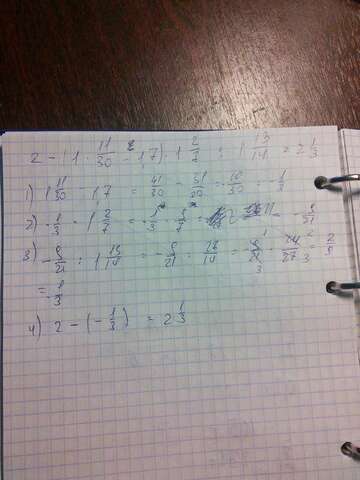 2 - (1 11/30 - 1,7) · 1 2/7 : 1 13/14 = 2 1/3
1) 1 11/30 - 1,7 = 41/30 - 51/30 = - 10/30 = - 1/3
2) - 1/3 · 1 2/7 = - 1/3 · 9/7 = - 9/21
3) - 9/21 : 1 13/14 = - 9/21 : 27/14 = - 9/21 · 14/27 = 2/9
=
4) 2 - (- 1/3) = 2 1/3